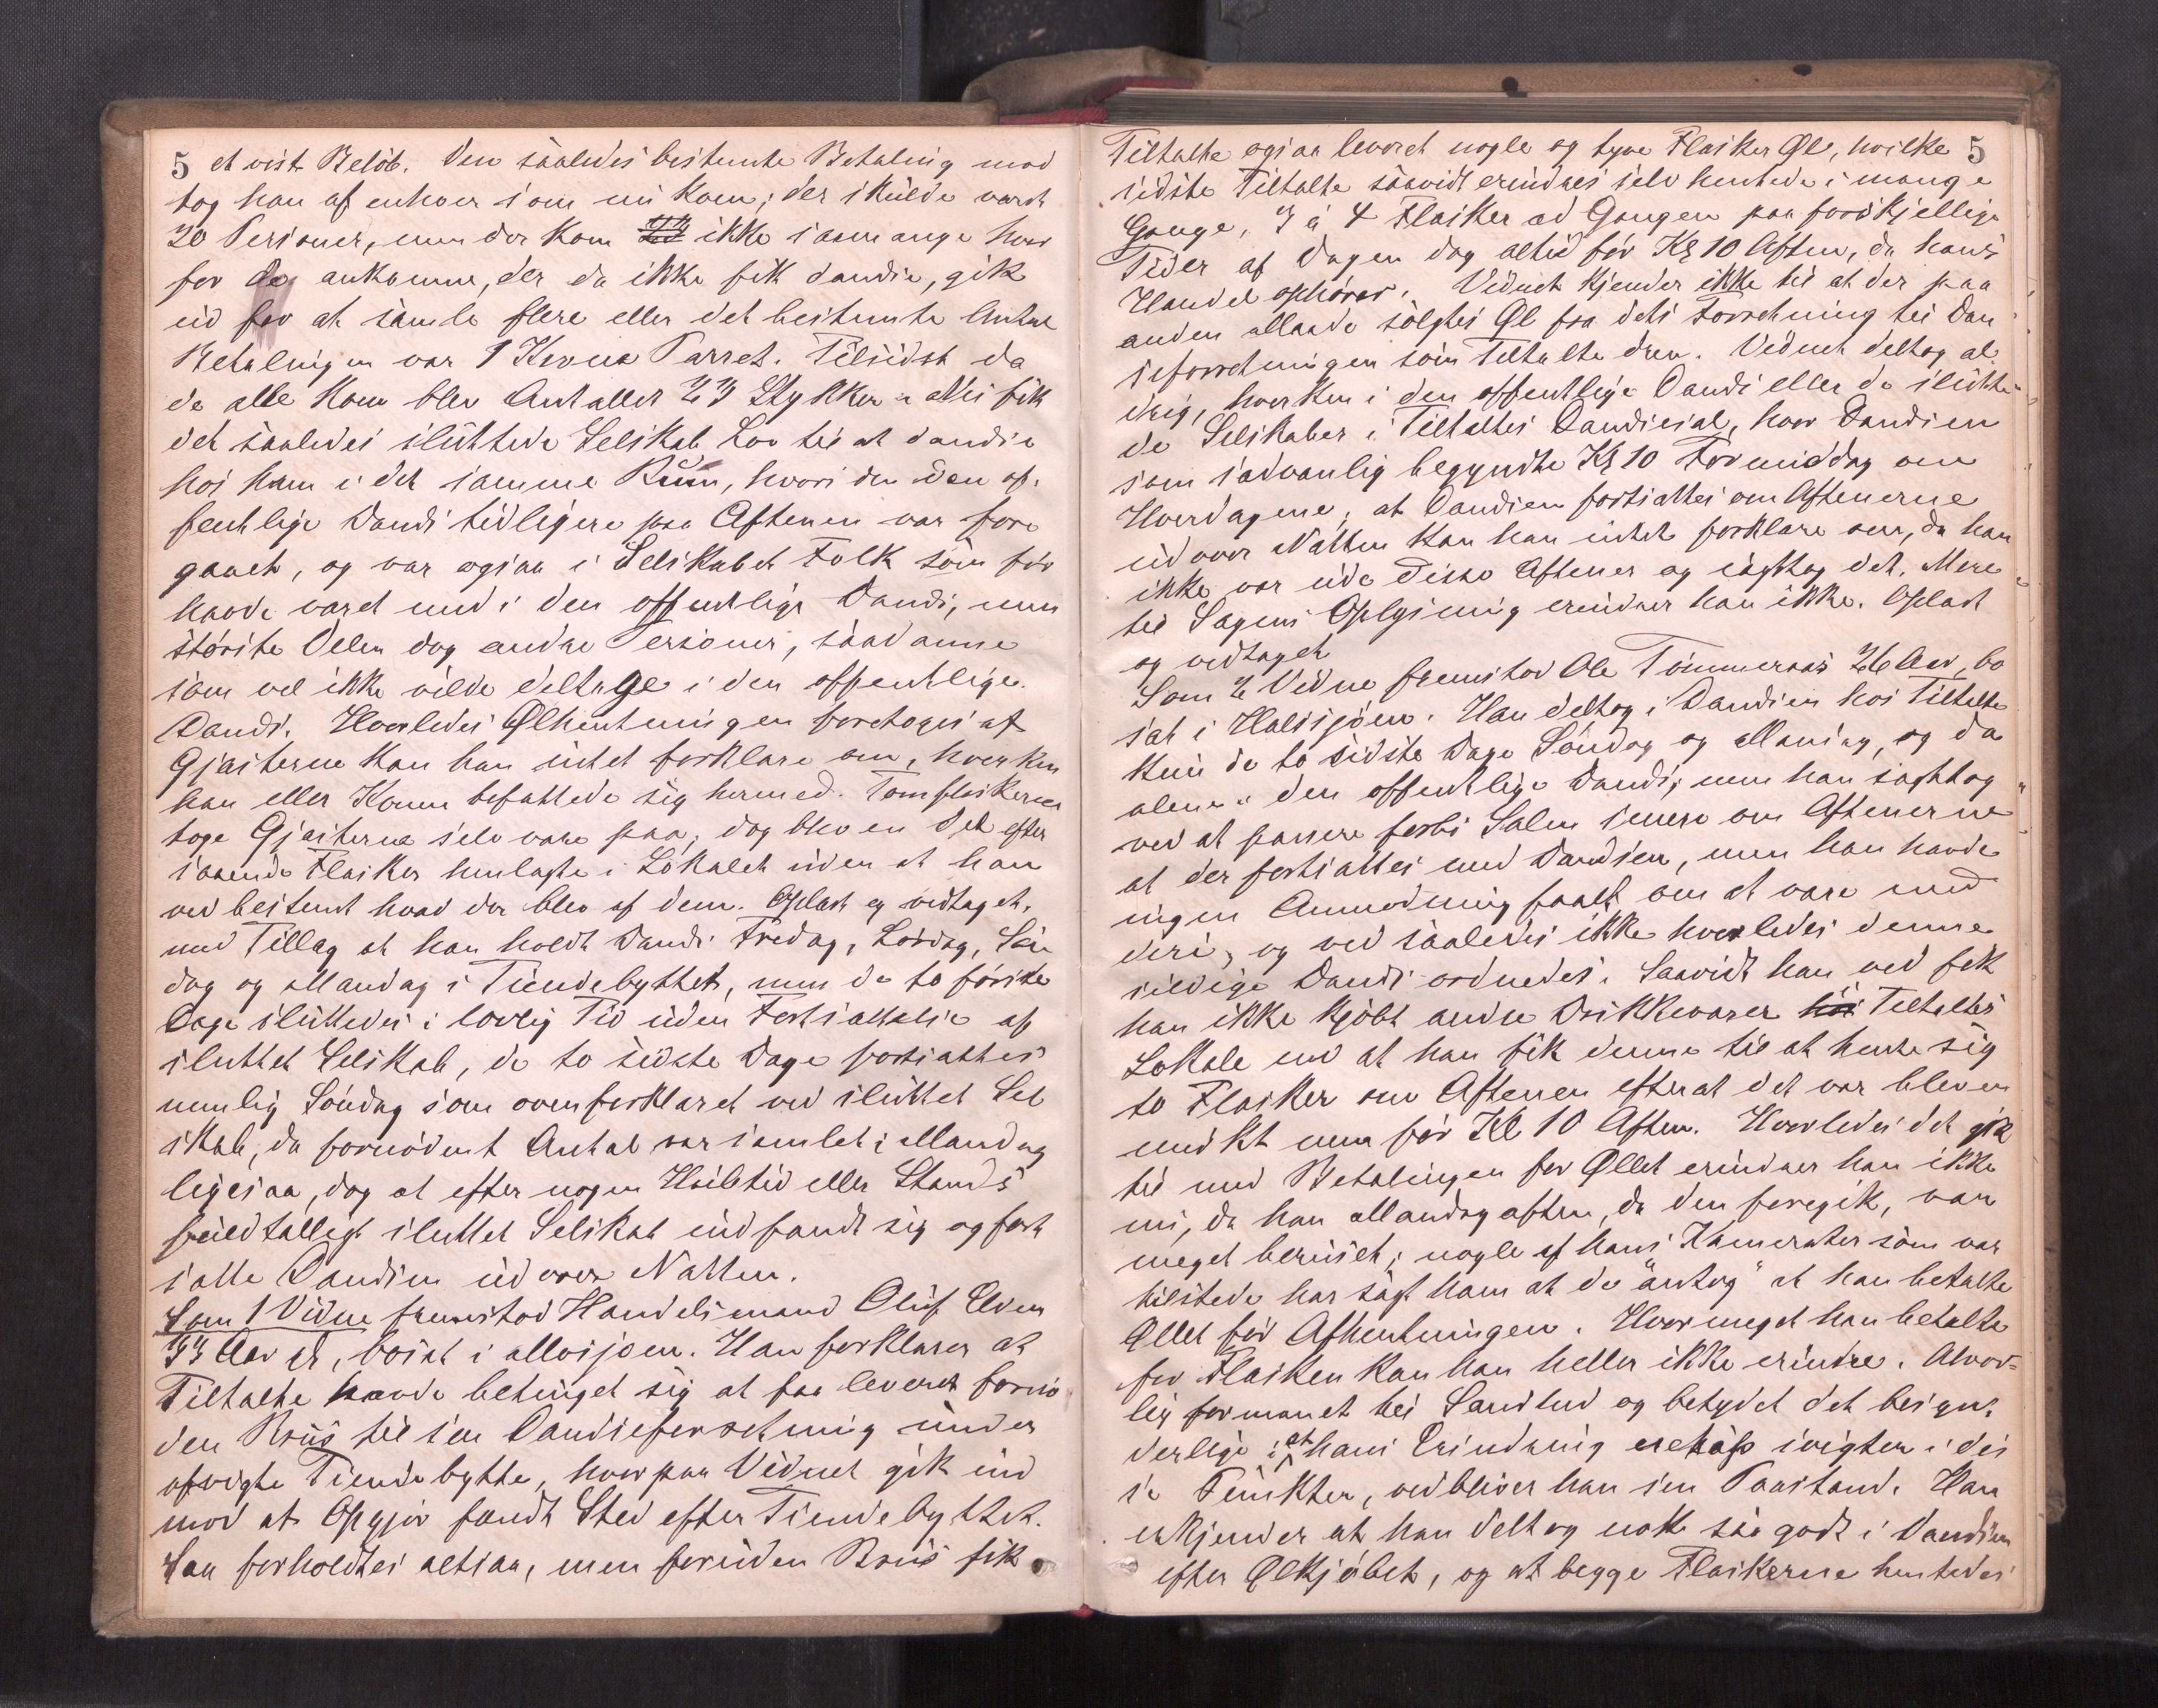 5 et vist Beløb. Den saaledes bestemte Betaling mod
tog han af enhver som nu kom; der skulde været
20 Personer, men der kom ikke saamange hvor
for de ankomne, der da ikke fik dandse, gik
ud for at samle flere eller det bestemte Antal
Betalingen var 1 Krone Parret. Tilsidst da
de alle kom blev Antallet 23 Stykker. Nu fik
det saaledes sluttede Selskab Lov til at dandse
hos ham i det samme Rum, hvori den of-
fentlige Dands tidligere paa Aftenen var fore
gaaet, og var ogsaa i Selskabet Folk som før
havde været med i den offentlige Dands, men
største Delen dog andre Personer, saadanne
som vel ikke vilde deltage i den offentlige
Dands. Hvorledes Ølhentningen foretoges af
Gjæsterne kan han intet forklare om, hverken
han eller Konen befattede sig hermed. Tomflaskerne
toge Gjæsterne selv vare paa, dog blev en Del efter
saaende Flasker henlagte i Lokalet uden at han
ved bestemt hvad der blev af dem. Oplæst og vedtaget,
med Tillæg at han holdt Dands Fredag, Lørdag, Søn
dag og Mandag i Tiendebyttet, men de to første
Dage sluttedes i lovlig Tid uden Fortsættelse af
sluttet Selskab, de to sidste Dage fortsattes
nemlig Søndag som ovenforklaret ved sluttet Sel
skab, da fornødent Antal var samlet; Mandag
ligesaa, dog at efter nogen Hviletid eller Stands
fuldtalligt sluttet Selskab indfandt sig og fort
satte Dandsen udover Natten.
Som 1 Vidne fremstod Handelsmand Oluf Elven
33 Aar gl, bosat i Mosjøen. Han forklarer at
Tiltalte havde betinget sig at faa leveret fornø
den Brus til sin Dandseforretning under
afvigte Tiendebytte, hvorpaa Vidnet gik ind
mod at Opgjør fandt Sted efter Tiendebyttet.
Saa forholdtes altsaa, men foruden Brus fik
Tiltalte ogsaa leveret nogle og tyve Flasker Øl, hvilke 5
sidste Tiltalte saavidt erindres selv hentede i mange
Gange, 3 à 4 Flasker ad Gangen paa forskjellige
Tider af Dagen dog altid før Kl 10 Aften, da hans
Handel ophører. Vidnet kjender ikke til at der paa
anden Maade solgtes Øl fra dets Forretning til Dan
seforretningen som Tiltalte drev. Vidnet deltog al
drig, hverken i den offentlige Dands eller de slutte
de Selskaber i Tiltaltes Dandsesal, hvor Dandsen
som sædvanlig begyndte Kl 10 Formiddag om
Hverdagene; at Dandsen fortsattes om Aftenerne
udover Natten kan han intet forklare om, da han
ikke var ude disse Aftener og iagttog det. Mere
til Sagens Oplysning erindrer han ikke. Oplæst
og vedtaget
Som 2 Vidne fremstod Ole Tømmeraas 26 Aar, bo
sat i Halsøen. Han deltog i Dandsen hos Tiltalte
kun de to sidste Dage Søndag og Mandag, og da
alene i den offentlige Dands; men han iagttog
ved at passere forbi Salen senere om Aftenerne
at der fortsattes med Dandsen, men han havde
ingen Anmodning faaet om at være med
deri, og ved saaledes ikke hvorledes denne
sildige Dands ordnedes. Saavidt han ved fik
han ikke kjøbt andre Drikkevarer Tiltaltes
Lokale end at han fik denne til at hente sig
to Flasker om Aftenen efterat det var bleven
mørkt men før Kl 10 Aften. Hvorledes det gik
til med Betalingen for Øllet erindrer han ikke
nu, da han Mandag aften, da den foregik, var
meget beruset; nogle af hans Kamerater som var
tilstede har sagt ham at de "antog" at han betalte
Øllet før Afhentningen. Hvormeget han betalte
for Flasken kan han heller ikke erindre. Alvor-
lig formanet til Sandhed og betydet det besyn-
derlige i at hans Erindring er saa svigten i dis
se Punkter, vedbliver han sin Paastand. Han
erkjender at han deltog nok saa godt i Dandsen
efter Ølkjøbet, og at begge Flaskerne hentedes